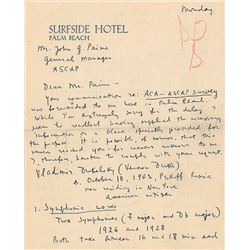 Monday
SURFSIDE HOTEL
PALM BEACH
Mr. John G. Paine
General Manager
ASCAP
Dear Mr. Paine —
Your communication re: ACA-ASCAP survey
was forwarded to me here in Palm Beach
While I'm extremely sorry for the delay I
seem to recollect having supplied the necessary
information on a blank specially provided for
this purpose. It is possible however that this
never reached you for reasons unknown to
me, therefore, hasten to comply with your request.
Vladimir Dukelsky (Vernon Duke)
b. October 10, 1903, Pskoff Russia
now residing in New York
American citizen
1. Symphonic works
Two Symphonies (F major and Db major)
1926 and 1928
Both take between 16 and 18 min. each